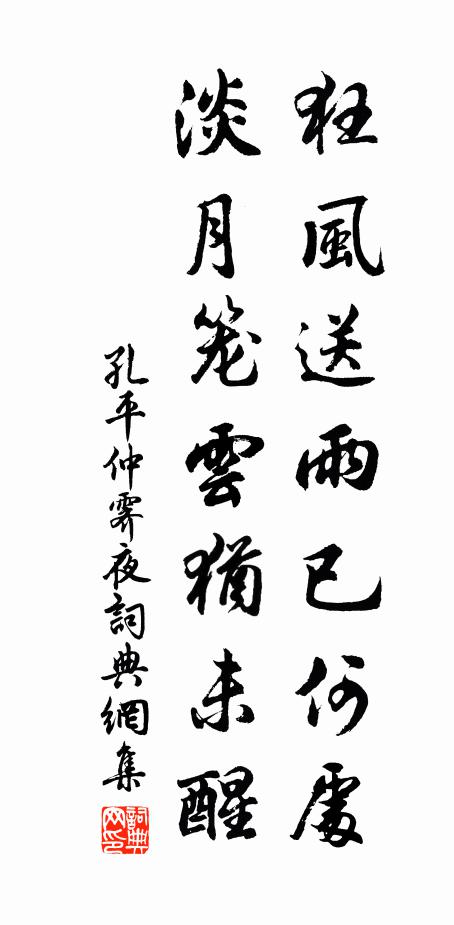 狂風送雨已何處
淡月笼雲猶未醒
孔平仲霽夜詞典網集
詞典網印